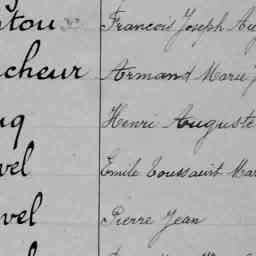 ntou François Joseph Au
cheur Armand Marie J
uq Henri Auguste
vel Emile Toussaint Mar
vel Pierre Jean